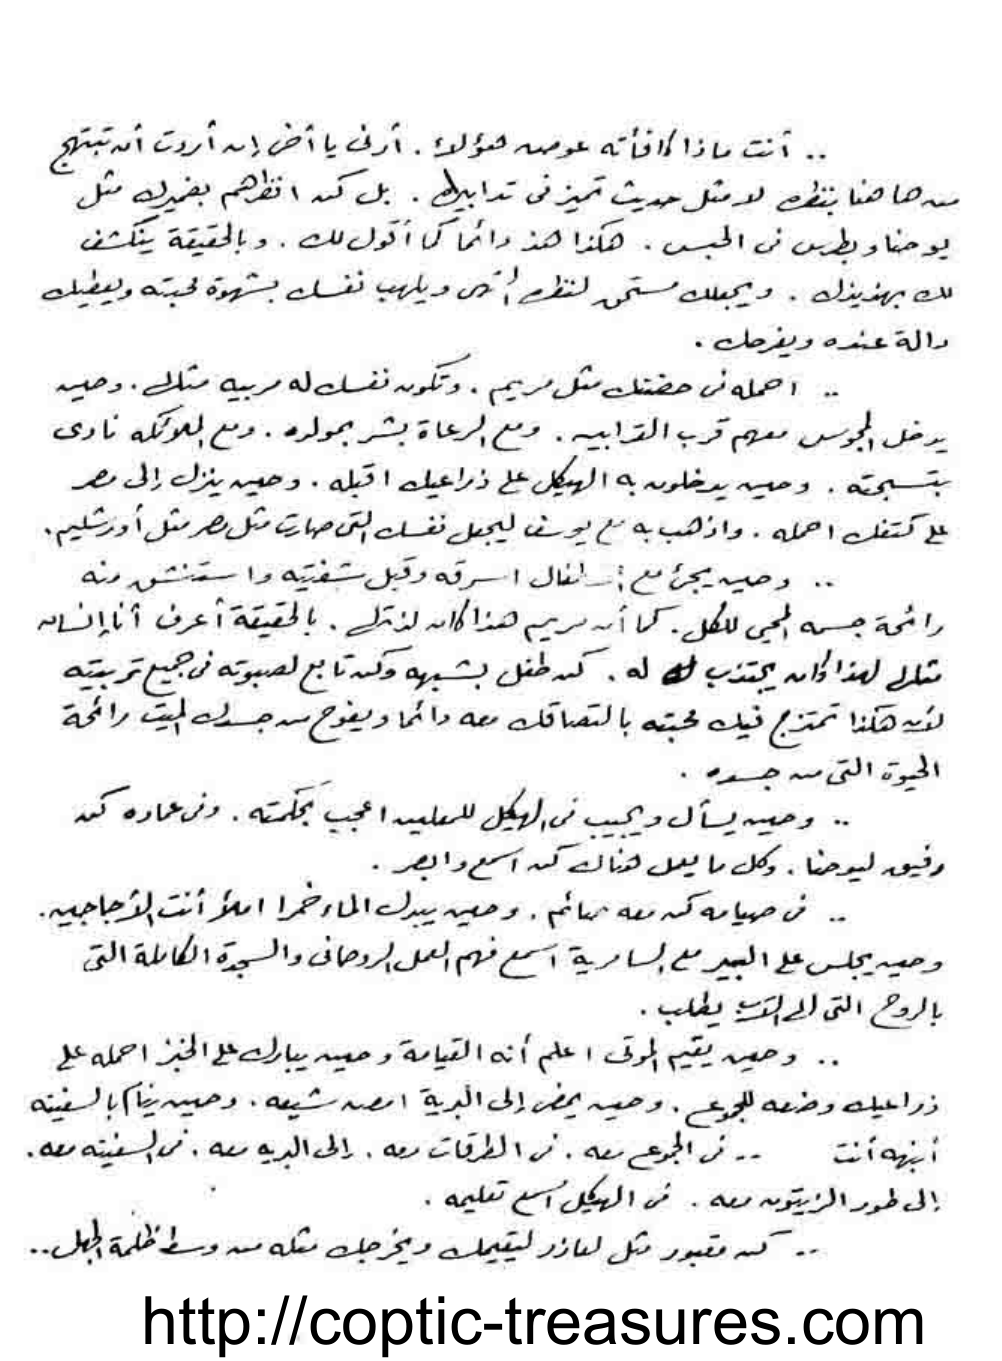 .. أنت ماذا كافأته عوض هؤلاء . أرنى يا أخى إن أردت أن تبتهج
من ها هنا بنظره لا مثل حديث تميز فى تدابيرك . بل كن انظرهم بضميرك مثل
يوحنا وبطرس فى الحبس . هكذا هذ دائما كما أقول لك . وبالحقيقة ينكشف
لك بهذيذك . ويجعلك مستحق لنظره ويلهب نفسك بشهوة محبته ويعطيك
دالة عنده ويفرحك .
.. احمله فى حضنك مثل مريم . وتكون نفسك له مربيه مثلى . وحين
يدخل المجوس معهم قرب القرابين . ومع الرعاة بشر بمولده . ومع الملائكه نادى
بتسبحته . وحين يدخلون به الهيكل على ذراعيك اقبله . وحين ينزل إلى مصر
على كتفك احمله . واذهب به مع يوسف ليجعل نفسك التى صارت مثل مصر مثل أورشليم .
.. وحين يجئ مع الأطفال اسرقه وقبل شفتيه واستنشق منه
رائحة جسمه المحيى للكل . كما أن مريم هذا كان لذتها . بالحقيقة أعرف أنا إنسان
مثلى لهذا كان يجتذب له . كن طفل بشبهه وكن تابع لصبوته فى جميع تربيته
لأن هكذا تمتزج فيك محبته بالتصاقك معه دائما ويفوح من جسدك الميت رائحة
الحيوة التى من جسده .
.. وحين يسأل ويجيب فى الهيكل للمعلمين اعجب بحكمته . وفى عماده كن
رفيق ليوحنا . وكل ما يعمل هناك كن اسمع وابصر .
.. فى صيامه كن معه صائم . وحين يبدل الماء خمرا املأ أنت الأجاجين .
وحين يجلس على البير مع السامرية اسمع فهم العمل الروحانى والسجدة الكاملة التى
بالروح التى الى يطلب .
.. وحين يقيم الموتى اعلم أنه القيامة وحين يبارك على الخبز احمله على
ذراعيك وضعه للجموع . وحين يمضى إلى البرية امض شيعه . وحين ينام بالسفينه
أنبهه أنت .. فى الجموع معه . فى الطرقات معه . إلى البريه معه . فى السفينه معه .
إلى طور الزيتون معه . فى الهيكل اسمع تعليمه .
.. كن مقبور مثل لعازر ليقيمك ويخرجك مثله من وسط ظلمة الجهل ..
http://coptic-treasures.com